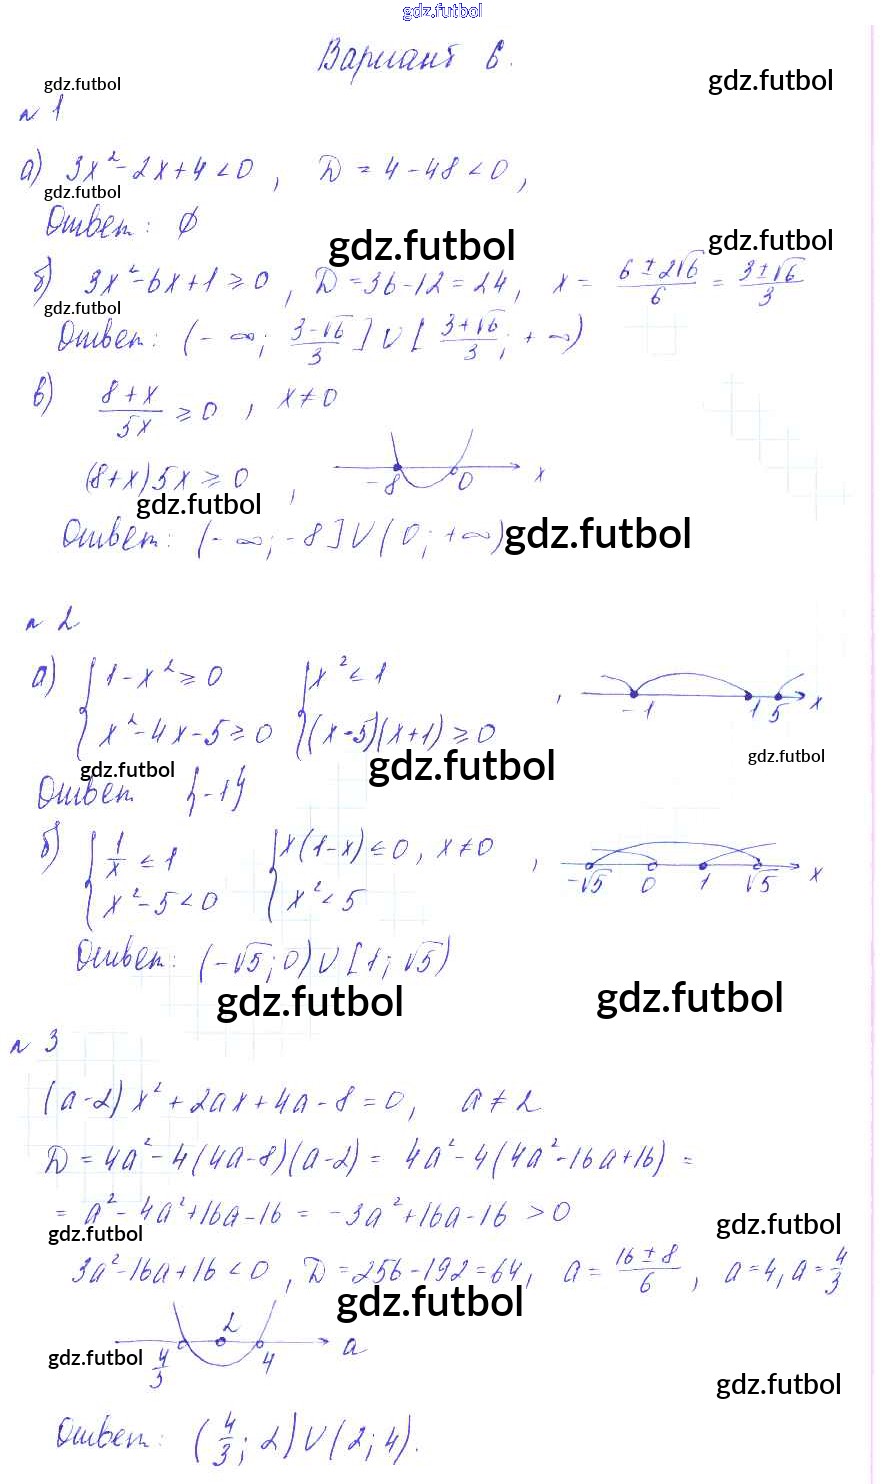 gdz.futbol
Вариант 6.
gdz.futbol gdz.futbol
№ 1
а) 3x² - 2x + 4 < 0 , D = 4 - 48 < 0 ,
gdz.futbol
Ответ: ∅
gdz.futbol gdz.futbol
б) 3x² - 6x + 1 ≥ 0 , D = 36 - 12 = 24 , x = (6 ± 2√6)/6 = (3 ± √6)/3
gdz.futbol
Ответ: (-∞; (3-√6)/3] ∪ [(3+√6)/3; +∞)
в) (8+x)/5x ≥ 0 , x ≠ 0
(8+x)5x ≥ 0 , -8 0 x
gdz.futbol
Ответ: (-∞; -8] ∪ (0; +∞) gdz.futbol
№ 2
а) { 1 - x² ≥ 0 { x² ≤ 1
x² - 4x - 5 ≥ 0 (x-5)(x+1) ≥ 0 , -1 1 5 x
gdz.futbol gdz.futbol gdz.futbol
Ответ {-1}
б) { 1/x ≤ 1 { x(1-x) ≤ 0, x ≠ 0
x² - 5 < 0 x² < 5 , -√5 0 1 √5 x
Ответ: (-√5; 0) ∪ [1; √5)
gdz.futbol gdz.futbol
№ 3
(a-2)x² + 2ax + 4a - 8 = 0, a ≠ 2
D = 4a² - 4(4a-8)(a-2) = 4a² - 4(4a² - 16a + 16) =
= a² - 4a² + 16a - 16 = -3a² + 16a - 16 > 0
gdz.futbol gdz.futbol
3a² - 16a + 16 < 0 , D = 256 - 192 = 64, a = (16 ± 8)/6 , a = 4, a = 4/3
gdz.futbol
4/3 2 4 a
gdz.futbol gdz.futbol
Ответ: (4/3; 2) ∪ (2; 4).